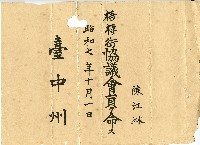 陳江沐
梧棲街協議會員ヲ命ス
昭和七年十月一日
臺中州